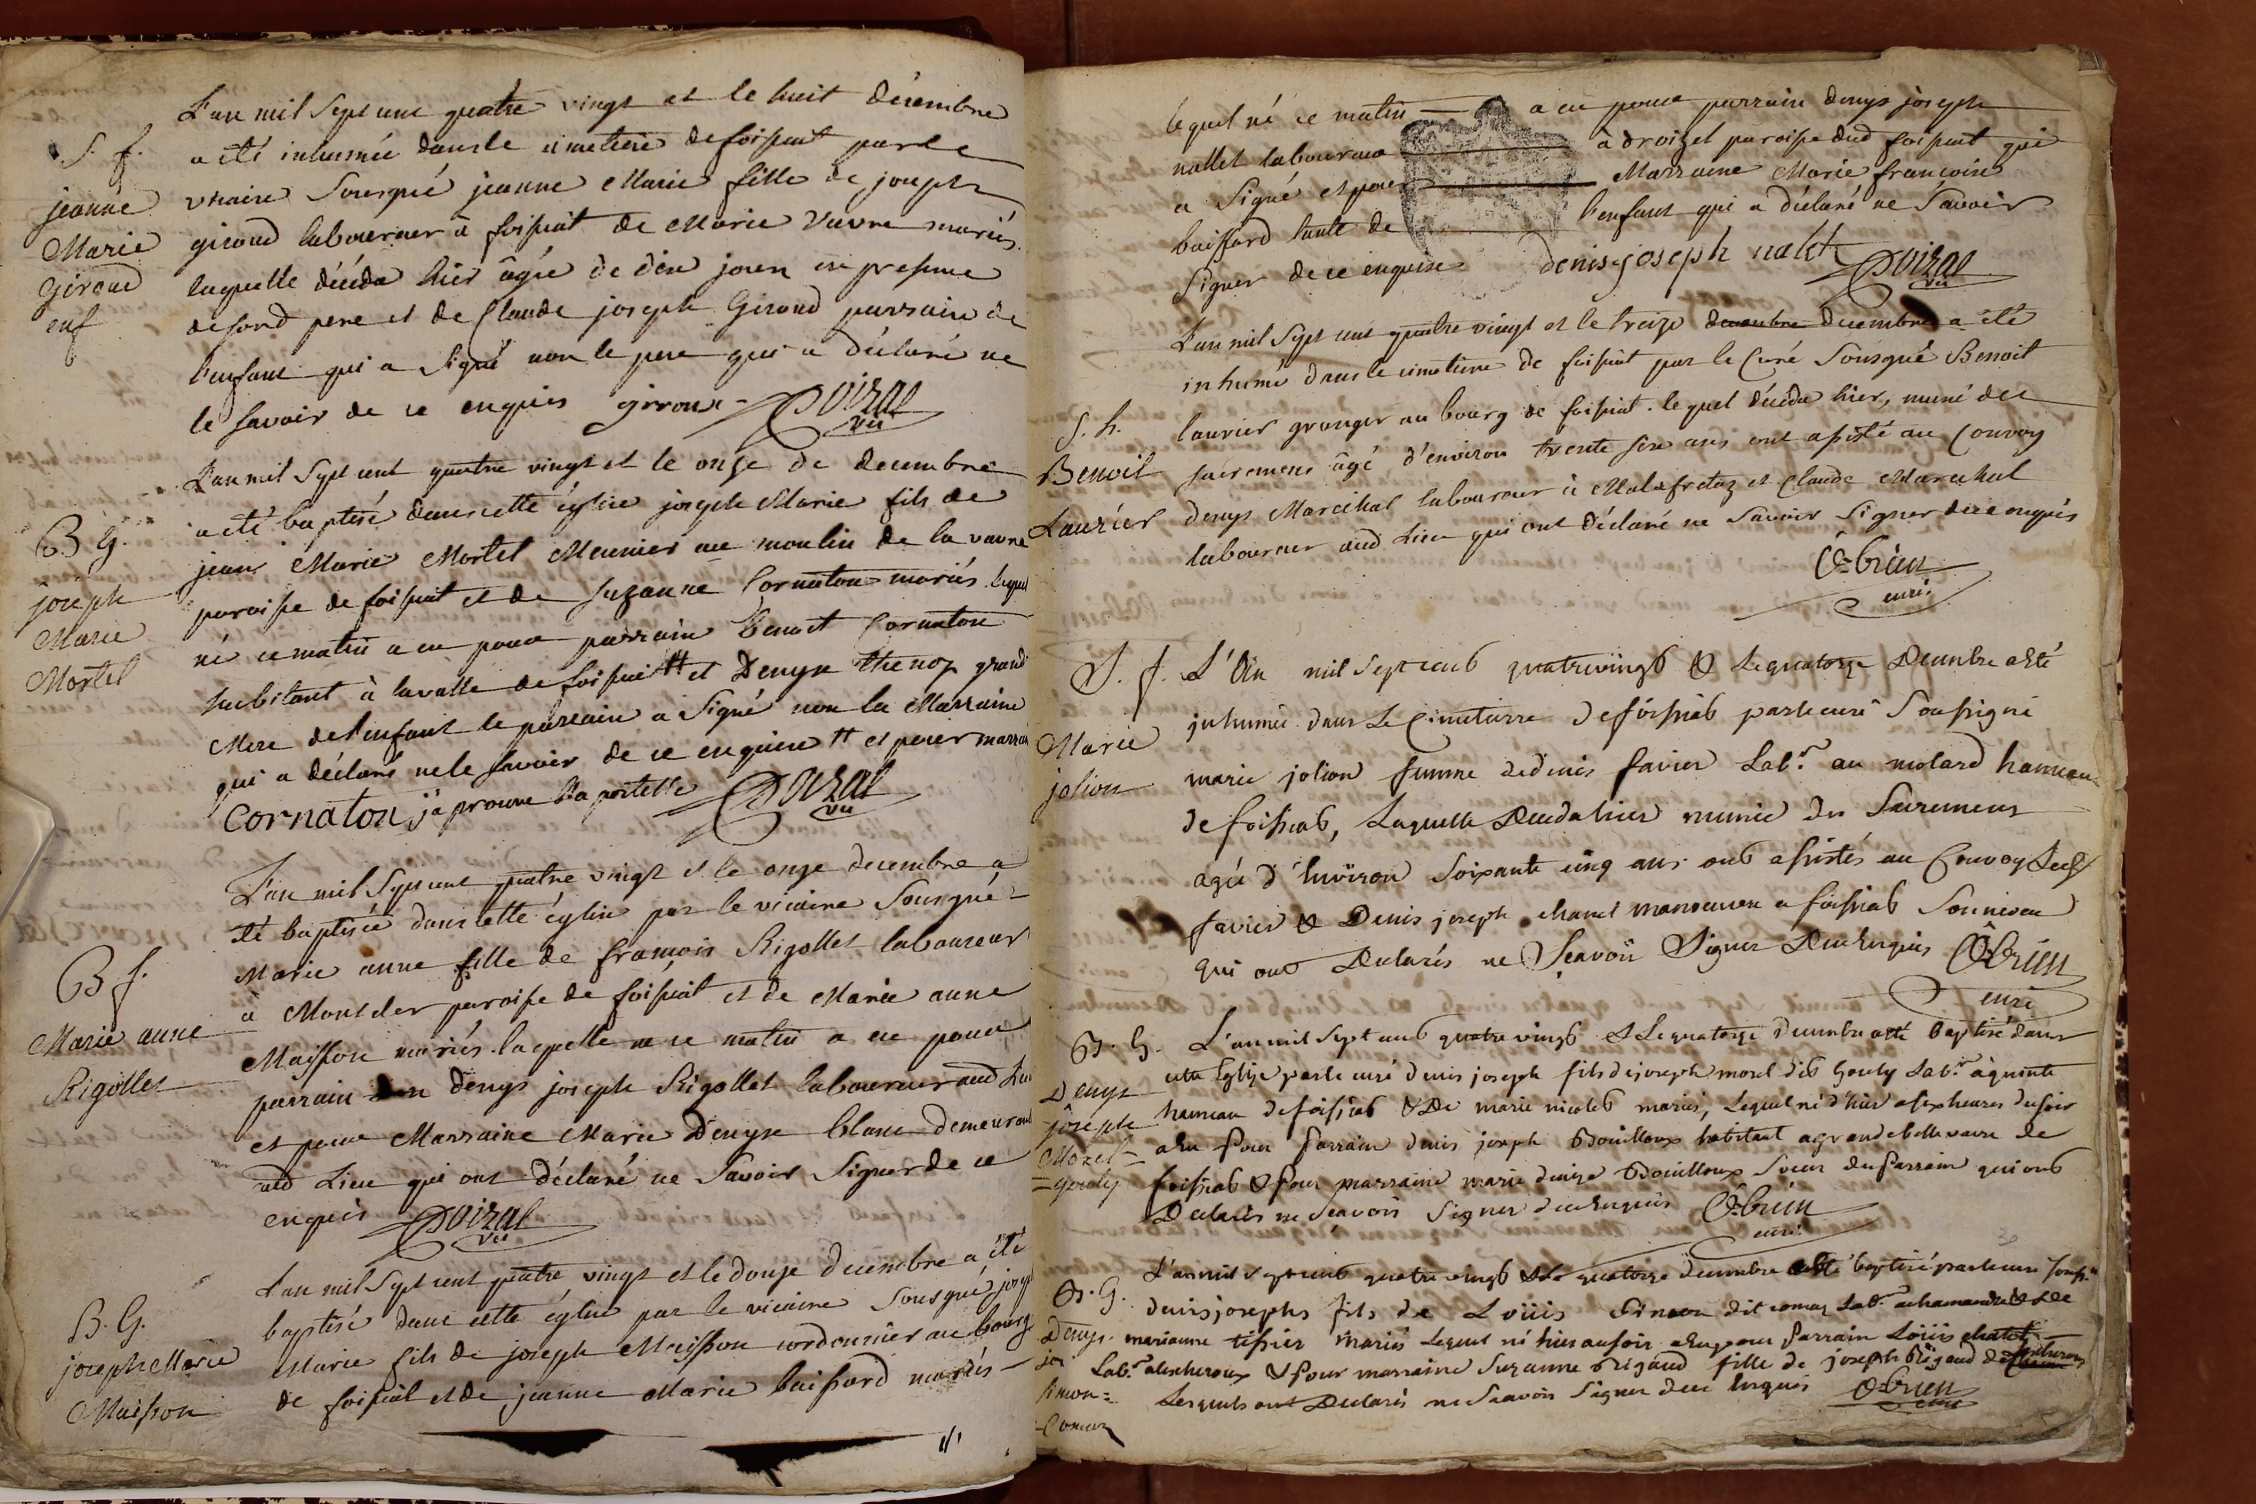 L'an mil sept cent quatre vingt et le huit décembre
S. f. a été inhumée dans le cimetiere de foissiat par le
jeanne vicaire Sousigné jeanne Marie fille de joseph
Marie giroud laboureur à foissiat de Marie Vavre mariés
Giroud laquelle décéda hier âgée de dix jours en presence
enf de sond pere et de Claude joseph Giroud parrain de
l'enfant qui a Signé non le pere qui a déclaré ne
le savoir de ce enquis giroux Poizat
vic
L'an mil Sept cent quatre vingt et le onze de decembre
B G. a été baptisé dans cette église joseph Marie fils de
joseph jean Marie Mortel Meunier au moulin de la vavre
Marie paroisse de foissiat et de suzanne Cornaton mariés lequel
Mortel né ce matin a eu pour parrain benoit Cornaton
habitant à lavalle de foissiat # et Denyse thenoz grand
Mere de l'enfant le parrain a Signé non la Marraine
qui a déclaré ne le savoir de ce enquise # et pour marrai
Cornaton j'aprouve l'apostille Poizat
vic
L'an mil Sept cent quatre vingt et le onze decembre a
été baptisée dans cette église par le vicaire Sousigné
B f. Marie anne fille de francois Rigollet laboureur
à Montcler paroisse de foissiat et de Marie anne
Marie anne Maisson mariés laquelle né ce matin a eu pour
Rigollet parrain denys joseph Rigollet laboureur aud Lieu
et pour Marraine Marie Denyse blanc demeurant
aud Lieu qui ont déclaré ne Savoir Signer de ce
enquis Poizat
vic
L'an mil Sept cent quatre vingt et le douze decembre a été
B. G. baptisé dans cette église par le vicaire Sousigné joseph
joseph Marie Marie fils de joseph Maisson cordonnier au bourg
Maisson de foissiat et de jeanne Marie buissard mariés
lequel né ce matin a eu pour parrain denys joseph
nallet laboureur à droizet paroisse dud foissiat qui
a Signé et pour Marraine Marie francoise
buissard tante de l'enfant qui a déclaré ne Savoir
Signer de ce enquise denis joseph nalet Poizat
vic
L'an mil Sept cent quatre vingt et le treize decembre a été
inhumé dans le cimetiere de foissiat par le Curé Sousigné Benoit
S. h. laurier granger au bourg de foissiat lequel décéda hier, muni des
Benoit sacremens âgé d'environ trente six ans ont assisté au Convoy
Laurier denys Marechal laboureur à Malafretaz et Claude Marechal
laboureur aud Lieu qui ont déclaré ne Savoir Signer de ce enquis
O-brien
curé.
S. f. L'An mil Sept cent quatrevingt & Le quatorze Decembre a Eté
inhumée dans Le Cimetierre de foissiat par le curé Soussigné
Marie marie jolion femme de denis favier Lab.r au molard hameau
jolion de foissiat, Laquelle Deceda hier munie des Sacremens
agée d'Environ Soixante cinq ans ont assistés au Convoy Led
favier & Denis joseph chanel manoeuvre a foissiat Son neveu
qui ont Declarés ne Sçavoir Signer De ce Enquis O-brien
curé
B. G. L'an mil Sept cent quatre vingt & Le quatorze Decembre a Eté baptisé dans
cette Eglize par le curé denis joseph fils de joseph morel dit Gouly Lab.r à quinte
Denys hameau de foissiat & De marie nicolet mariés, Lequel né d'hier a six heures du soir
joseph a Eu pour Parrain denis joseph Bouilloux habitant a grande belle vavre de
Morel foissiat & pour marraine marie denize Bouilloux Soeur du Parrain qui ont
gouly Declarés ne Sçavoir Signer de ce Enquis O-brien
curé.
L'an mil Sept cent quatre vingt & Le quatorze decembre a Eté baptisé par le curé Souss.né
B. G. denis joseph fils de Loüis Simeon dit comas Lab.r a chamandre & de
denys marianne tissier mariés Lequel né hier au soir a Eu pour Parrain Loüis chatel
jos Lab.r & pour marraine Suzanne Rigaud fille de joseph Rigaud de
simon Lesquels ont Declarés ne Sçavoir Signer de ce Enquis O-brien
Comas curé